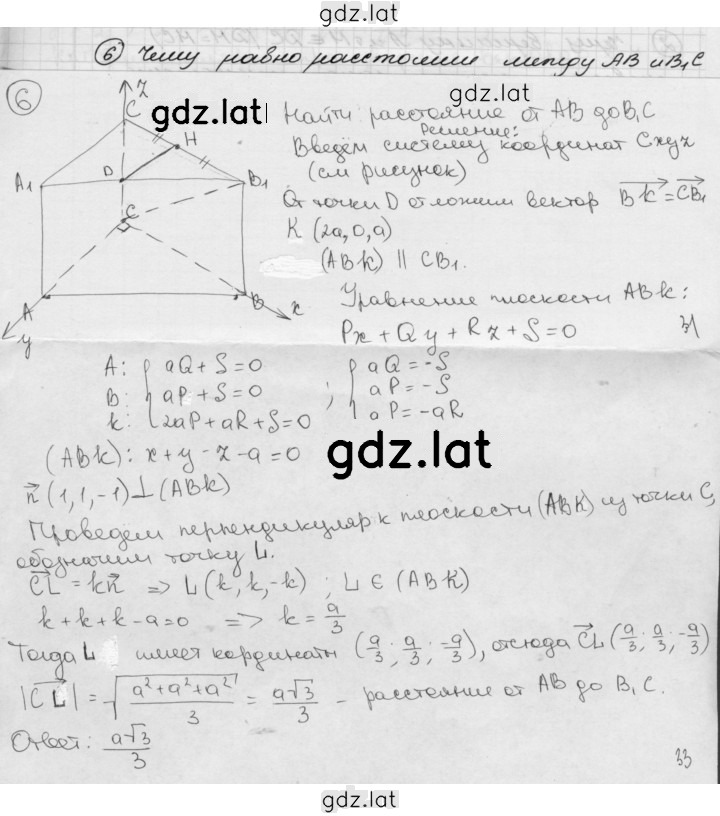 gdz.lat
⑥ Чему равно расстояние между AB и B₁C
gdz.lat
⑥
z
C
H
A₁
D
B₁
C
A
B
x
y
gdz.lat
Найти: расстояние от AB до B₁C
Решение:
Введём систему координат Cxyz
(см рисунок)
От точки D отложим вектор BK = CB₁
K (2a, 0, a)
(ABK) || CB₁.
Уравнение плоскости ABK:
Px + Qy + Rz + S = 0
A: { aQ + S = 0 ; { aQ = -S
B: { aP + S = 0 { aP = -S
K: { 2aP + aR + S = 0 { aP = -aR
gdz.lat
(ABK): x + y - z - a = 0
n (1, 1, -1) ⊥ (ABK)
Проведём перпендикуляр к плоскости (ABK) из точки C,
обозначим точку L.
CL = kn => L (k, k, -k) ; L ∈ (ABK)
k + k + k - a = 0 => k = a/3
Тогда L имеет координаты (a/3; a/3; -a/3), отсюда CL (a/3; a/3; -a/3)
|CL| = √(a² + a² + a²)/3 = a√3/3 - расстояние от AB до B₁C.
Ответ: a√3/3
33
gdz.lat